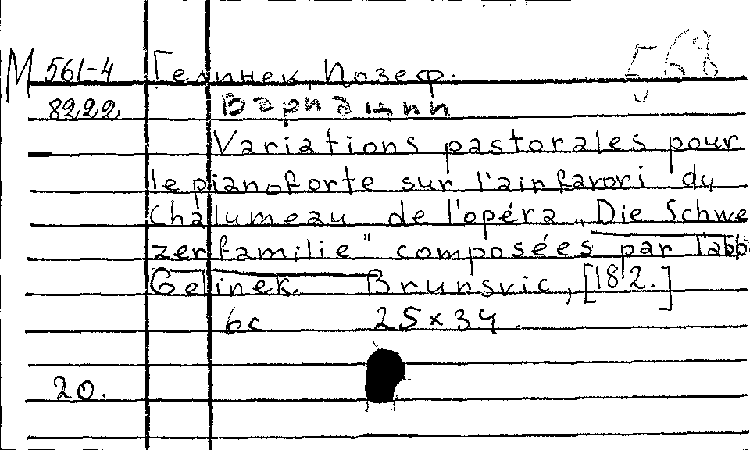 М 561-4 Гелинек, Иозеф. 568
8222 Вариации
Variations pastorales pour
le pianoforte sur l'air favori du
Chalumeau de l'opéra „Die Schwei
zerfamilie" composées par l'abbé
Gelinek. Brunsvic, [18 2.]
6с 25×34
20.